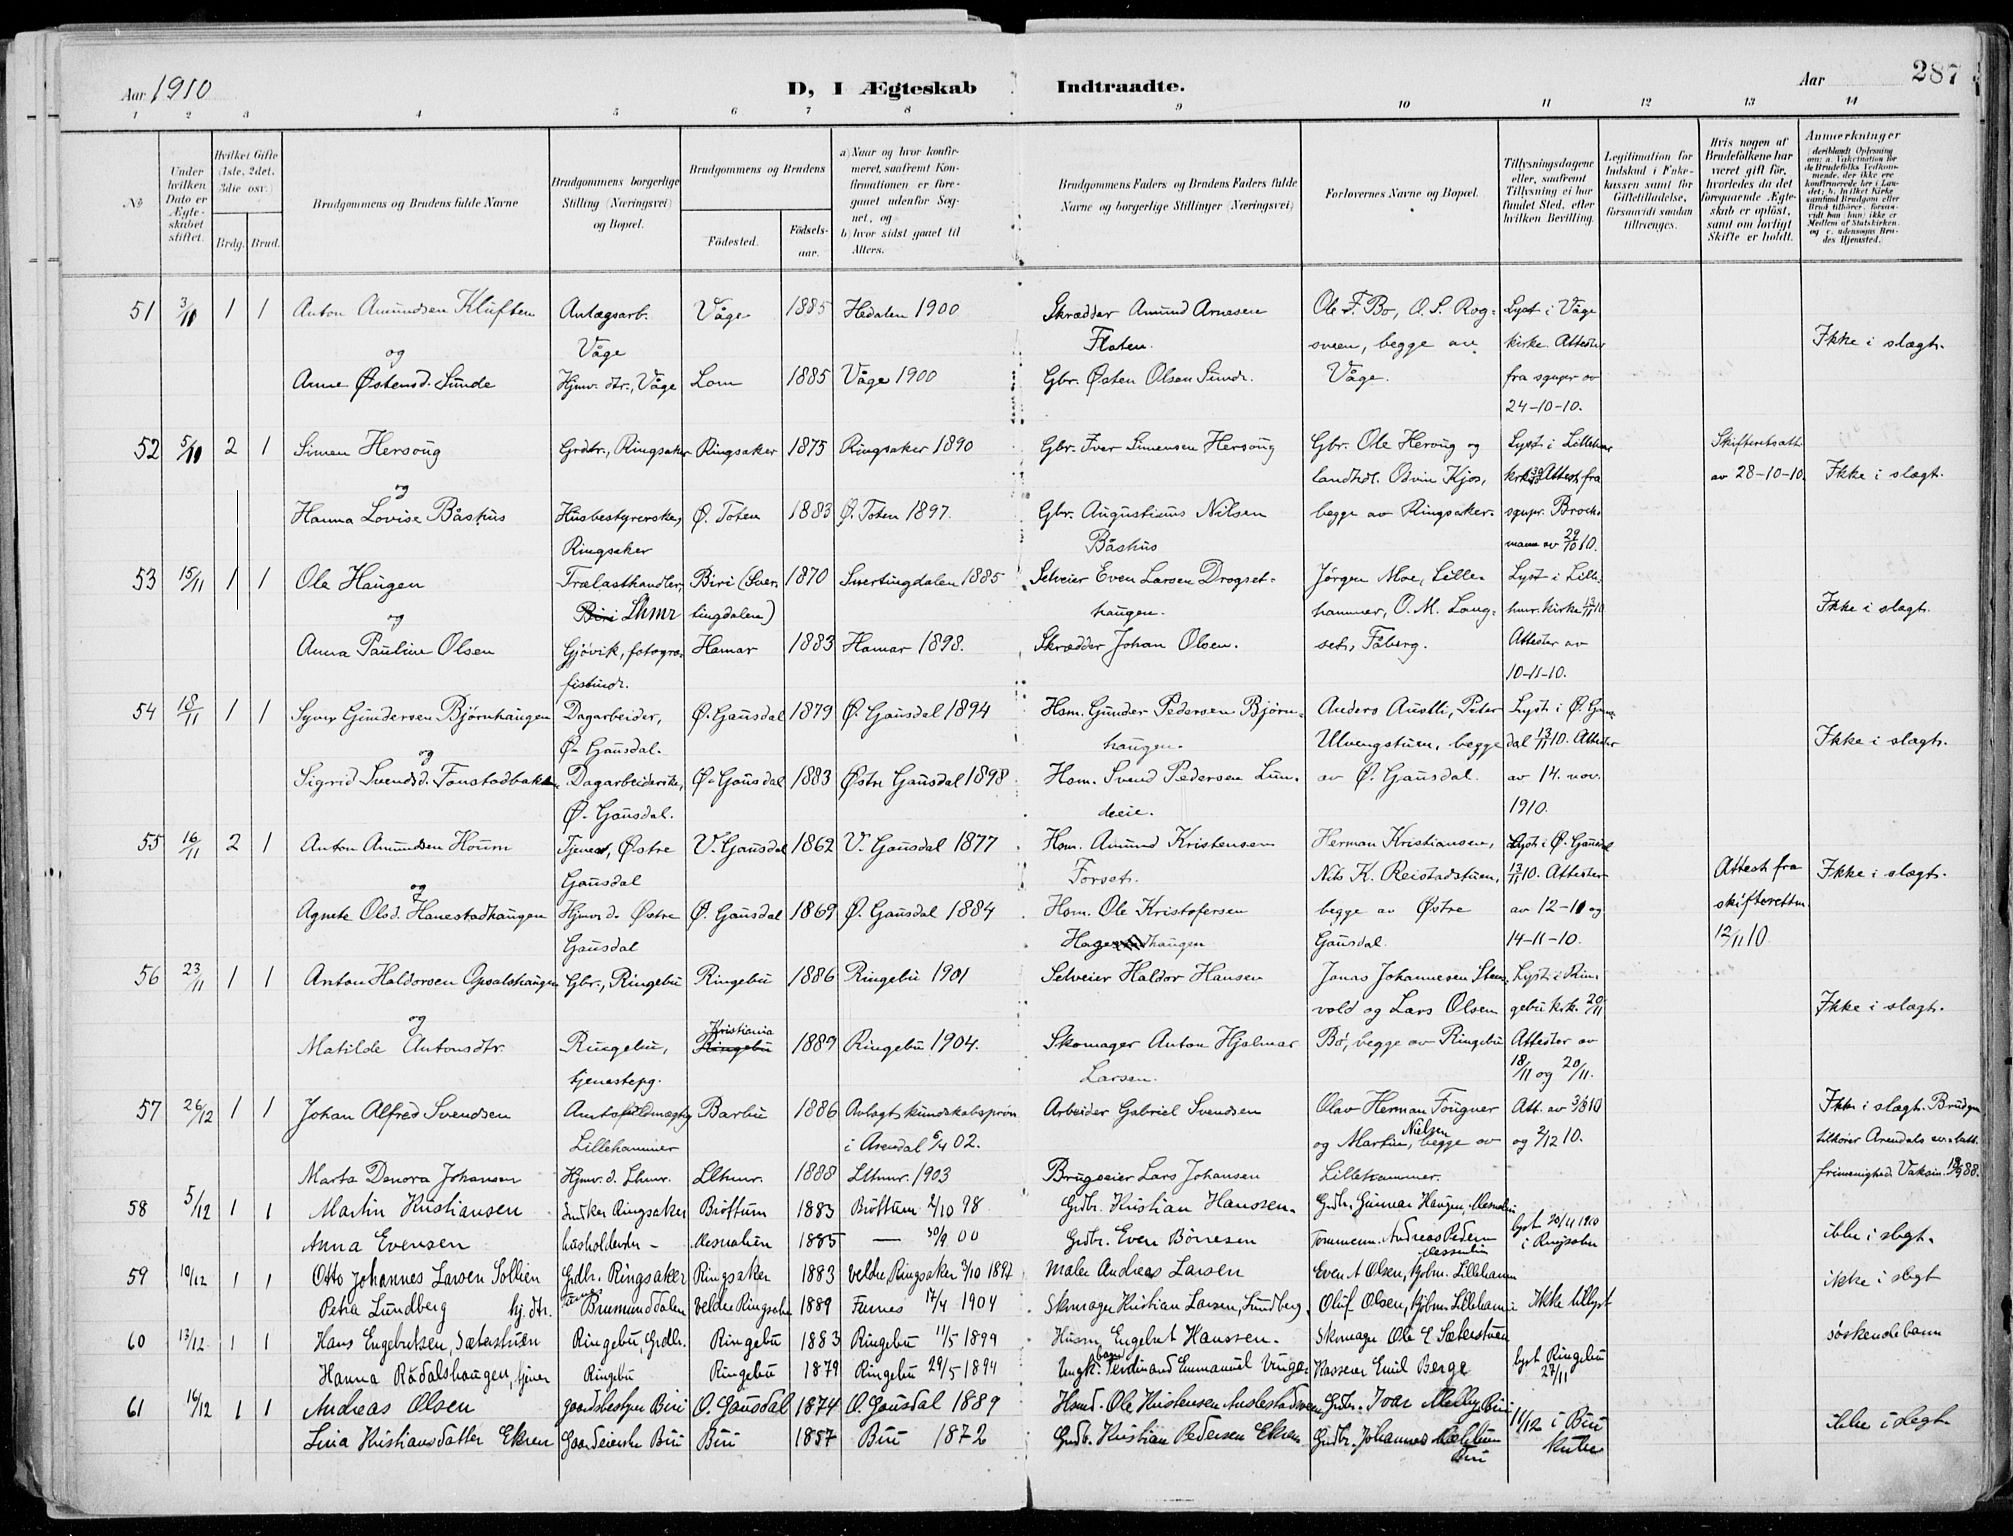 Aar 1910
D, I Ægteskab Indtraadte.
Aar 287
1 2 3 4 5 6 7 8 9 10 11 12 13 14
No
Under hvilken Dato er Ægteskabet stiftet.
Hvilket Gifte (1ste, 2det, 3die osv.)
Brdg. Brud.
Brudgommens og Brudens fulde Navne
Brudgommens borgerlige Stilling (Næringsvei) og Bopæl.
Brudgommens og Brudens
Fødested. Fødselsaar.
a) Naar og hvor konfirmeret, saafremt Konfirmationen er foregaaet udenfor Sognet, og
b) hvor sidst gaaet til Alters.
Brudgommens Faders og Brudens Faders fulde Navne og borgerlige Stillinger (Næringsvei)
Forlovernes Navne og Bopæl.
Tillysningsdagene eller, saafremt Tillysning ei har fundet Sted, efter hvilken Bevilling.
Legitimation for Indskud i Enkekassen samt for Giftetilladelse, forsaavidt saadan tiltrænges.
Hvis nogen af Brudefolkene har været gift før, hvorledes da det foregaaende Ægteskab er opløst, samt om lovligt Skifte er holdt.
Anmerkninger
51 3/10 1 1 Anton Amundsen Kluften Anlægsarb. Våge 1885 Hedalen 1900 Skrædder Amund Arnesen Ole F. Bo, O. S. Rog- Lyst i Våge
og Våge Floten. sveen, begge av kirke. Attester Ikke i slægt.
Anne Østensd. Sunde Hjmv. dtr., Våge Lom 1885 Våge 1900 Gbr. Østen Olsen Sunde. Våge. fra sgnpr av
24-10-10.
52 5/10 2 1 Simen Hersoug Grdbr., Ringsaker Ringsaker 1875 Ringsaker 1890 Gbr. Iver Simensen Hersoug Gbr. Ole Heroug og Lyst i Lilleham Skifteretsatt
og landhdl. Odvin Kjos, Attest fra av 28-10-10. Ikke i slægt.
Hanna Lovise Båshus Husbestyrerske, Ø. Toten 1883 Ø. Toten 1897. Gbr. Augustinus Nilsen begge av Ringsaker. sgnpr. Brock-
Ringsaker Båshus mann av 29/10 10.
53 15/11 1 1 Ole Haugen Trælasthandler, Biri (Sner- 1870 Snertingdalen 1885 Selveier Even Larsen Drogset- Jørgen Moe, Lille- Lyst i Lille-
og Biri Lhmr tingdalen) haugen. hammer, O. M. Lang- hmr. kirke 13/11 10 Ikke i slægt.
Anna Pauline Olsen Gjøvik, fotogra- Hamar 1883 Hamar 1898. Skrædder Johan Olsen. set, Fåberg. Attester av
10-11-10.
54 18/11 1 1 Syver Gundersen Bjørnhaugen Dagarbeider, Ø. Gausdal 1879 Ø. Gausdal 1894 Hsm. Gunder Pedersen Bjørn- Anders Austli, Peter Lyst i Ø. Gaus-
og Ø. Gausdal. haugen. Ulvengstuen, begge dal 13/11 10. Attester Ikke i slægt.
Sigrid Svendsd. Fonstadbakken Dagarbeiderske, Ø. Gausdal 1883 Østre Gausdal 1898 Hsm. Svend Pedersen Lun- av Ø. Gausdal. av 14. nov.
Ø. Gausdal. deeie. 1910.
55 16/11 2 1 Anton Amundsen Houm Tjenest, Østre V. Gausdal 1862 V. Gausdal 1877 Hsm. Amund Kristensen Herman Kristiansen, Lyst i Ø. Gausdal
og Gausdal Forset. Nils K. Reistadstuen, 13/11 10. Attester Attest fra Ikke i slægt.
Agnete Olsd. Hanestadhaugen Hjmv. d. Østre Ø. Gausdal 1869 Ø. Gausdal 1884 Hsm. Ole Kristofersen begge av Østre av 12-11 og skifteretten
Gausdal Gausdal. 14-11-10. 12/11 10.
56 23/11 1 1 Anton Haldorsen Opsalshaugen Gbr., Ringebu Ringebu 1886 Ringebu 1901 Selveier Haldor Hansen Jonas Johannesen Stens- Lyst i Rin-
og vold og Lars Olsen gebu kirk. 20/11 Ikke i slægt.
Matilde Antonsdtr. Ringebu, Kristiania Ringebu 1889 Ringebu 1904. Skomager Anton Hjalmar Bø, begge av Ringebu Attester av
tjenestepg. Larsen. 18/11 og 20/11.
57 26/12 1 1 Johan Alfred Svendsen Amtsfuldmægtig Barbu 1886 Avlagt kundskabsprøv. Arbeider Gabriel Svendsen Olav Herman Fougner Att. av 3/8 10 Ikke i slægt. Brudgm
Lillehammer i Arendal 6/4 02. og Martin Nielsen, begge av og 2/12 10. tilhører Arendals
Marta Denora Johansen Hjmv. d. Lhmr. Llhmr. 1888 Llhmr. 1903 Brugseier Lars Johansen Lillehammer. frimenighed. Vaksin.
58 5/12 1 1 Martin Kristiansen Snekker Ringsaker Brøttum 1883 Brøttum 2/10 98 Grdbr. Kristian Hanssen. Grdbr. Gunnar Haugen, Mesnalien
Anna Evensen husholderske - Mesnalien 1885 — 30/9 00 Grdbr. Even Børresen Tømmerm. Andreas Pedersen lyst 20/11 1910 i Ringsaker ikke i slegt.
59 10/12 1 1 Otto Johannes Larsen Sollien Grdbr. Ringsaker Ringsaker 1883 Veldre Ringsaker 3/10 1897 Maler Andreas Larsen Even A Olsen, Lilleham ikke i slegt
Petra Lundberg hj. dtr. Brumunddalen Veldre Ringsaker 1889 Furnes 17/4 1904 Skomager Kristian Larsen, Lundberg, Oluf Olsen, Lilleham Ikke tillyst
60 13/12 1 1 Hans Engebretsen Sæterstuen Ringebu, Grdbr. Ringebu 1883 Ringebu 11/5 1899 Husm. Engebret Hanssen. Skomager Ole E Sæterstuen søskendebarn
Hanna Rådalshaugen, tjener Ringebu Ringebu 1879 Ringebu 29/5 1894 Ungk. Ferdinand Emmanuel Kasserer Emil Berge lyst Ringebu 27/11
61 16/12 1 1 Andreas Olsen gaardsbestyrer Biri O. Gausdal 1874 O. Gausdal 1889 Husmd. Ole Kristensen Grdbr. Ivar Melby Biri 11/12 i Biri Kirke ikke i slegt
Lina Kristiansdatter Ekren Gaardeierske Biri Biri 1857 Biri 1872 Grdb. Kristian Pedersen Ekren Grdbr. Johannes Biri